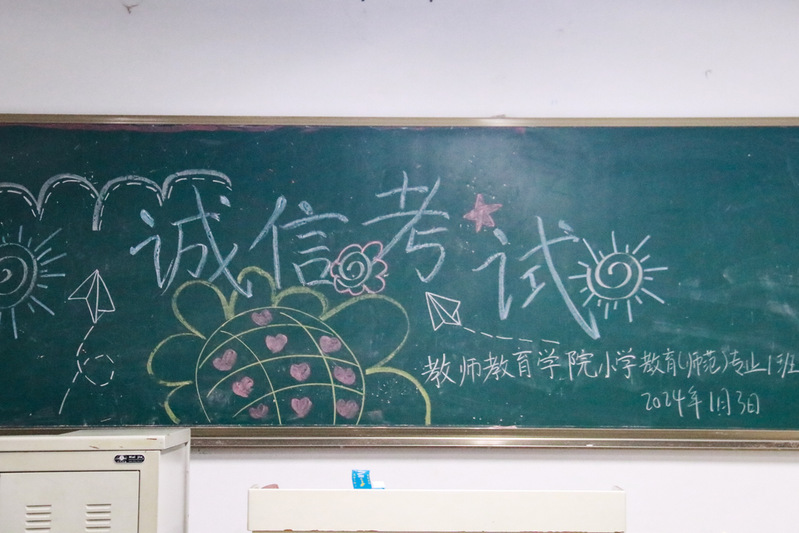 诚信考试
教师教育学院小学教育(师范)专业1班
2024年1月3日